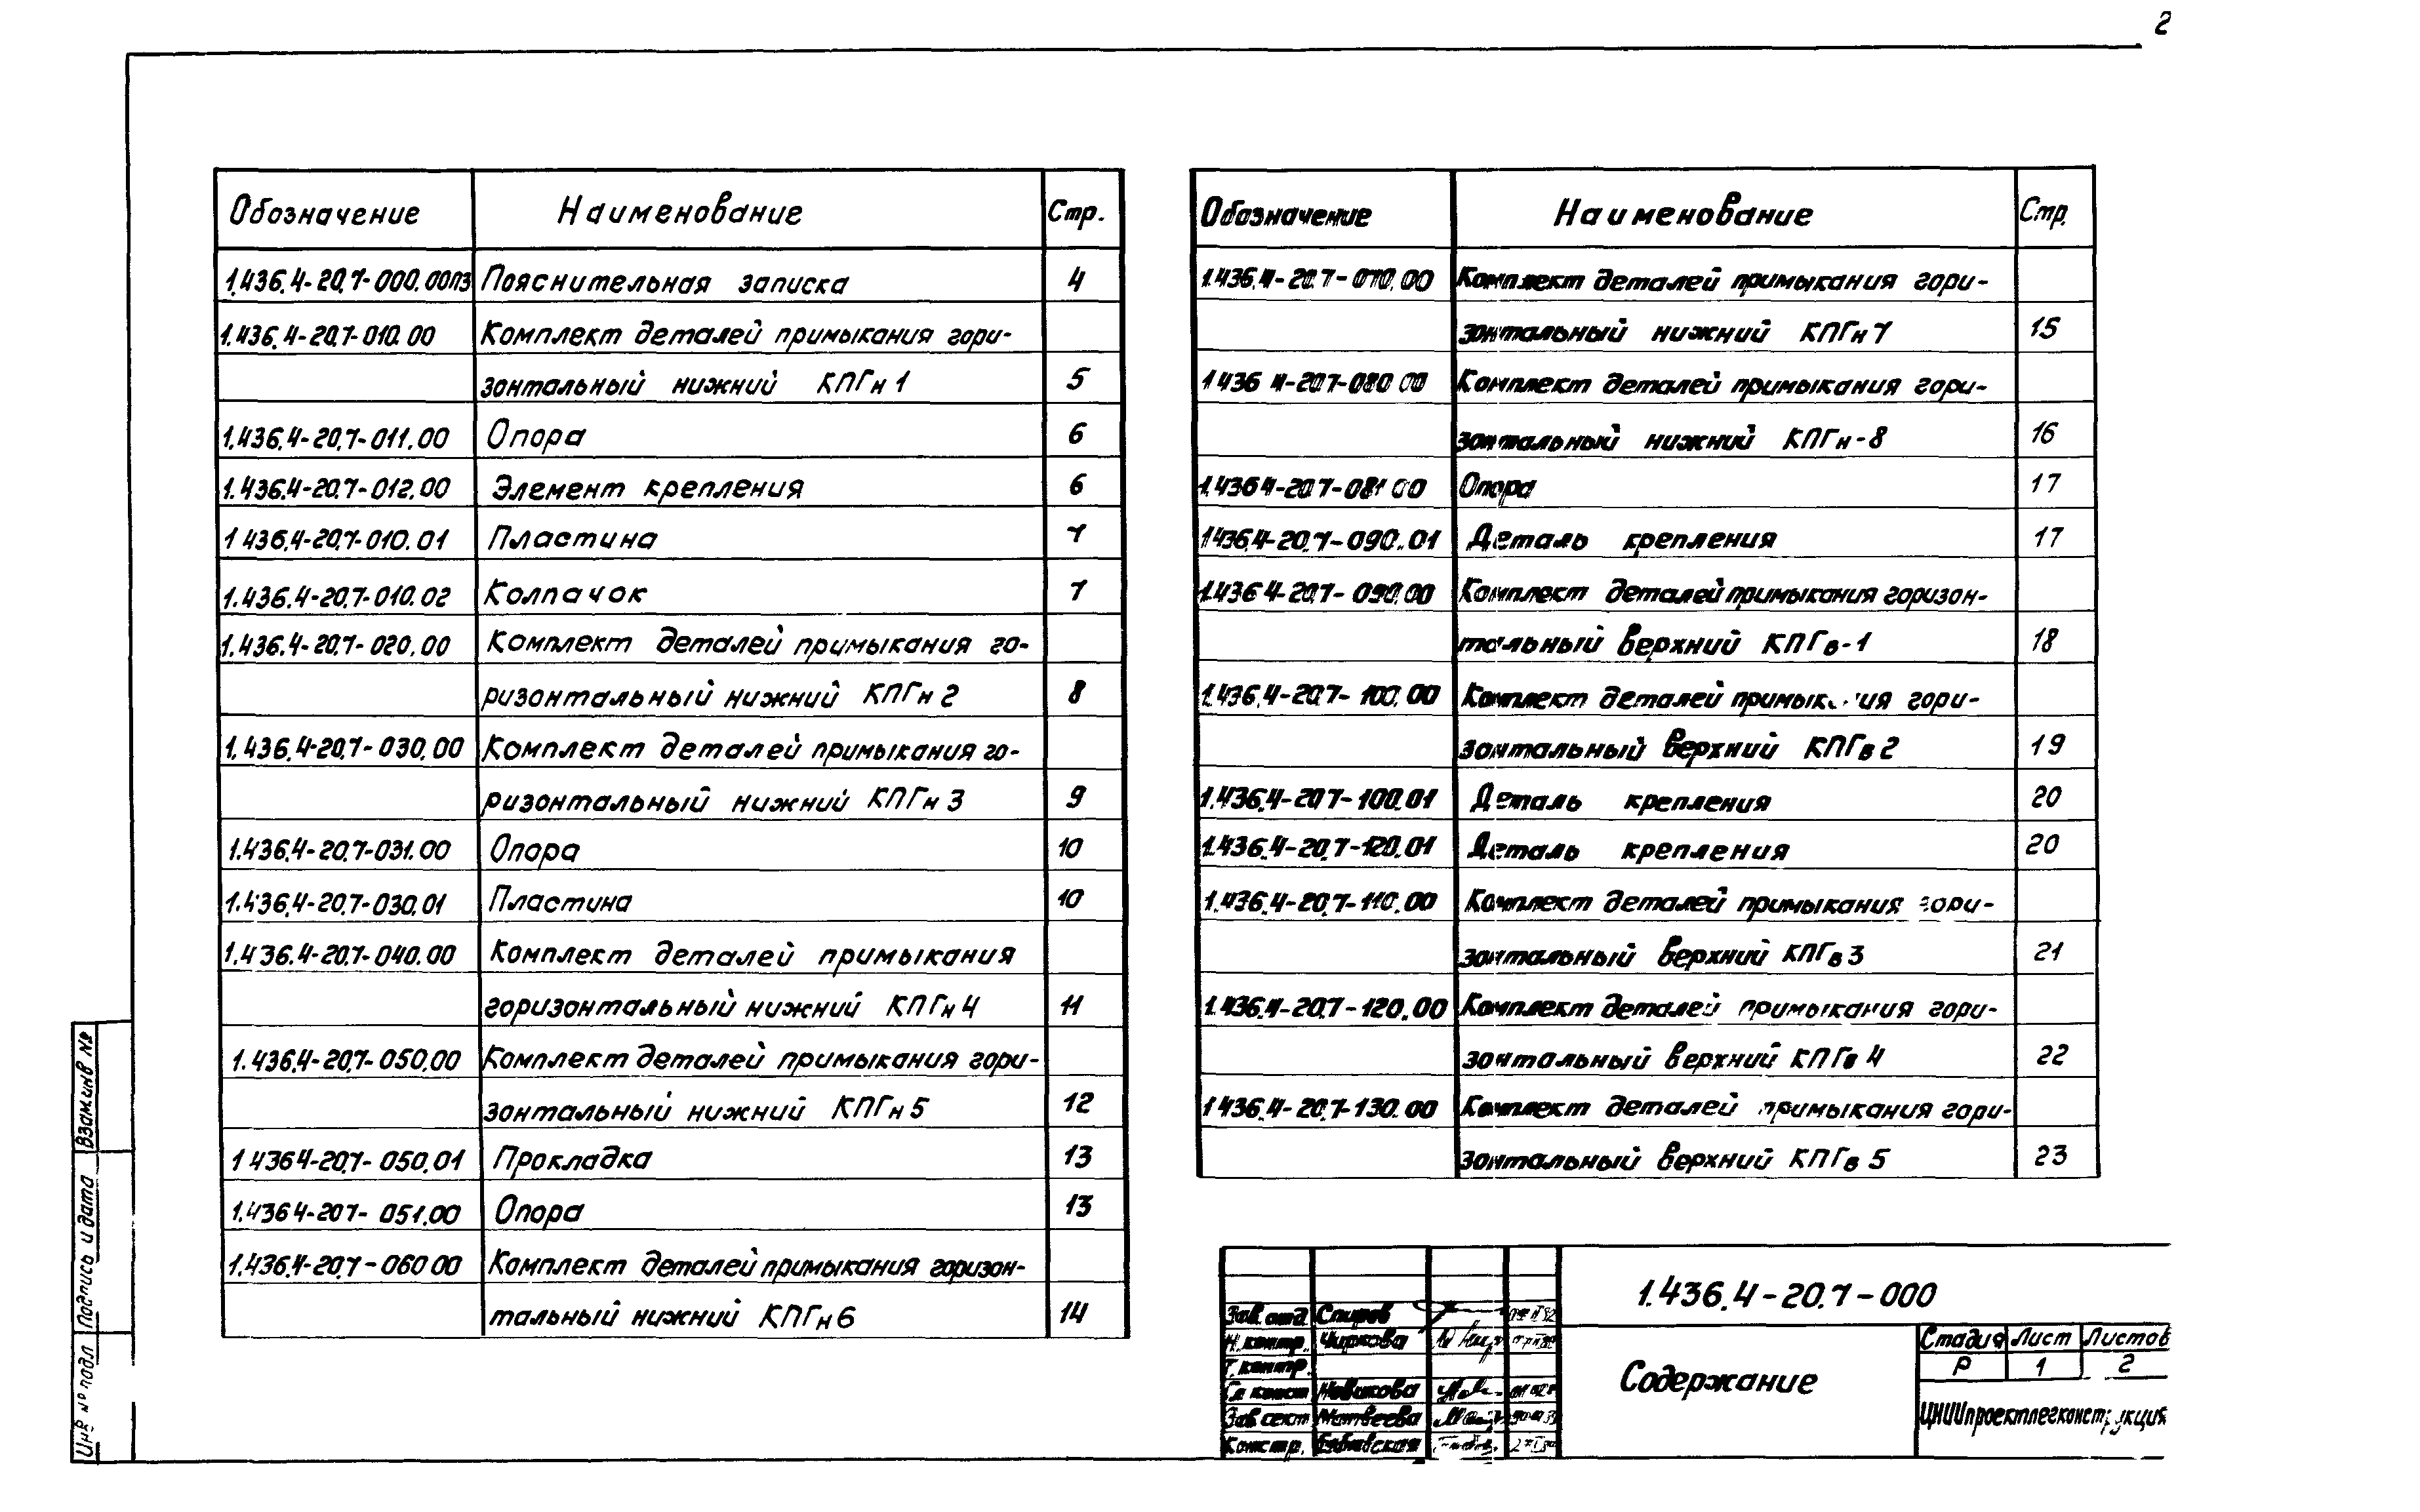 2
Обозначение Наименование Стр.
1.436.4-20.7-000.00ПЗ Пояснительная записка 4
1.436.4-20.7-010.00 Комплект деталей примыкания гори-
зонтальный нижний КПГн 1 5
1.436.4-20.7-011.00 Опора 6
1.436.4-20.7-012.00 Элемент крепления 6
1 436.4-20.7-010.01 Пластина 7
1.436.4-20.7-010.02 Колпачок 7
1.436.4-20.7-020.00 Комплект деталей примыкания го-
ризонтальный нижний КПГн 2 8
1.436.4-20.7-030.00 Комплект деталей примыкания го-
ризонтальный нижний КПГн 3 9
1.436.4-20.7-031.00 Опора 10
1.436.4-20.7-030.01 Пластина 10
1.436.4-20.7-040.00 Комплект деталей примыкания
горизонтальный нижний КПГн 4 11
1.436.4-20.7-050.00 Комплект деталей примыкания гори-
зонтальный нижний КПГн 5 12
1 436 4-20.7-050.01 Прокладка 13
1.436 4-20 7-051.00 Опора 13
1.436.4-20.7-060 00 Комплект деталей примыкания горизон-
тальный нижний КПГн 6 14
Обозначение Наименование Стр.
1.436.4-20.7-070.00 Комплект деталей примыкания гори-
зонтальный нижний КПГн 7 15
1 436 4-20.7-080 00 Комплект деталей примыкания гори-
зонтальный нижний КПГн-8 16
1.436 4-20 7-081 00 Опора 17
1 436.4-20.7-090.01 Деталь крепления 17
1.436 4-20.7-090.00 Комплект деталей примыкания горизон-
тальный верхний КПГв-1 18
1.436.4-20.7-100.00 Комплект деталей гори-
зонтальный верхний КПГв 2 19
1.436.4-20 7-100.01 Деталь крепления 20
1.436.4-20.7-120.01 Деталь крепления 20
1.436.4-20.7-110.00 Комплект деталей примыкания гори-
зонтальный верхний КПГв 3 21
1.436.4-20.7-120.00 Комплект деталей примыкания гори-
зонтальный верхний КПГв 4 22
1 436.4-20.7-130.00 Комплект деталей примыкания гори-
зонтальный верхний КПГв 5 23
1.436.4-20.7-000
Содержание
Стадия Лист Листов
Р 1 2
ЦНИИпроектлегконструкция
Зав. отд. Спиров
Н. контр. Чиркова
Т. контр.
Гл констр Новикова
Зав сект Матвеева
Констр.
Взам инв №
Подпись и дата
Инв № подл